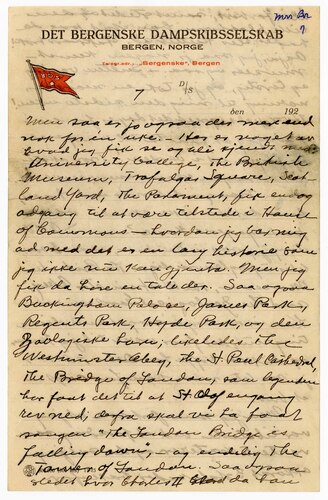 Mrs Br
?
DET BERGENSKE DAMPSKIBSSELSKAB
BERGEN, NORGE
Telegr.adr.: „Bergenske", Bergen
7
D/S
den 192
Men saa er jo ogsaa det mere end
nok for en uke. Her er noget av
hvad jeg fik se og ble kjendt med
University College, The British
Museum, Trafalgar Square, Scot
land Yard, The Parliment, fik endog
adgang til at være tilstede i House
of Commons – hvordan jeg bar mig
ad med det er en lang historie som
jeg ikke nu kan gjenta. Men jeg
fik da høre en tale der. Saa ogsaa
Buckingham Palace, James Park,
Regents Park, Hyde Park, og den
Zoologiske have; likeledes The
Westminster Abey, the St Paul Cathedral,
The Bridge of London, som legenden
har faat det til at St Olof engang
rev ned; defra skal vi ha faat
sangen "The London Bridge is
falling down", – og endelig The
Tower of London. Saa ogsaa
stedet hvor Charles II da han